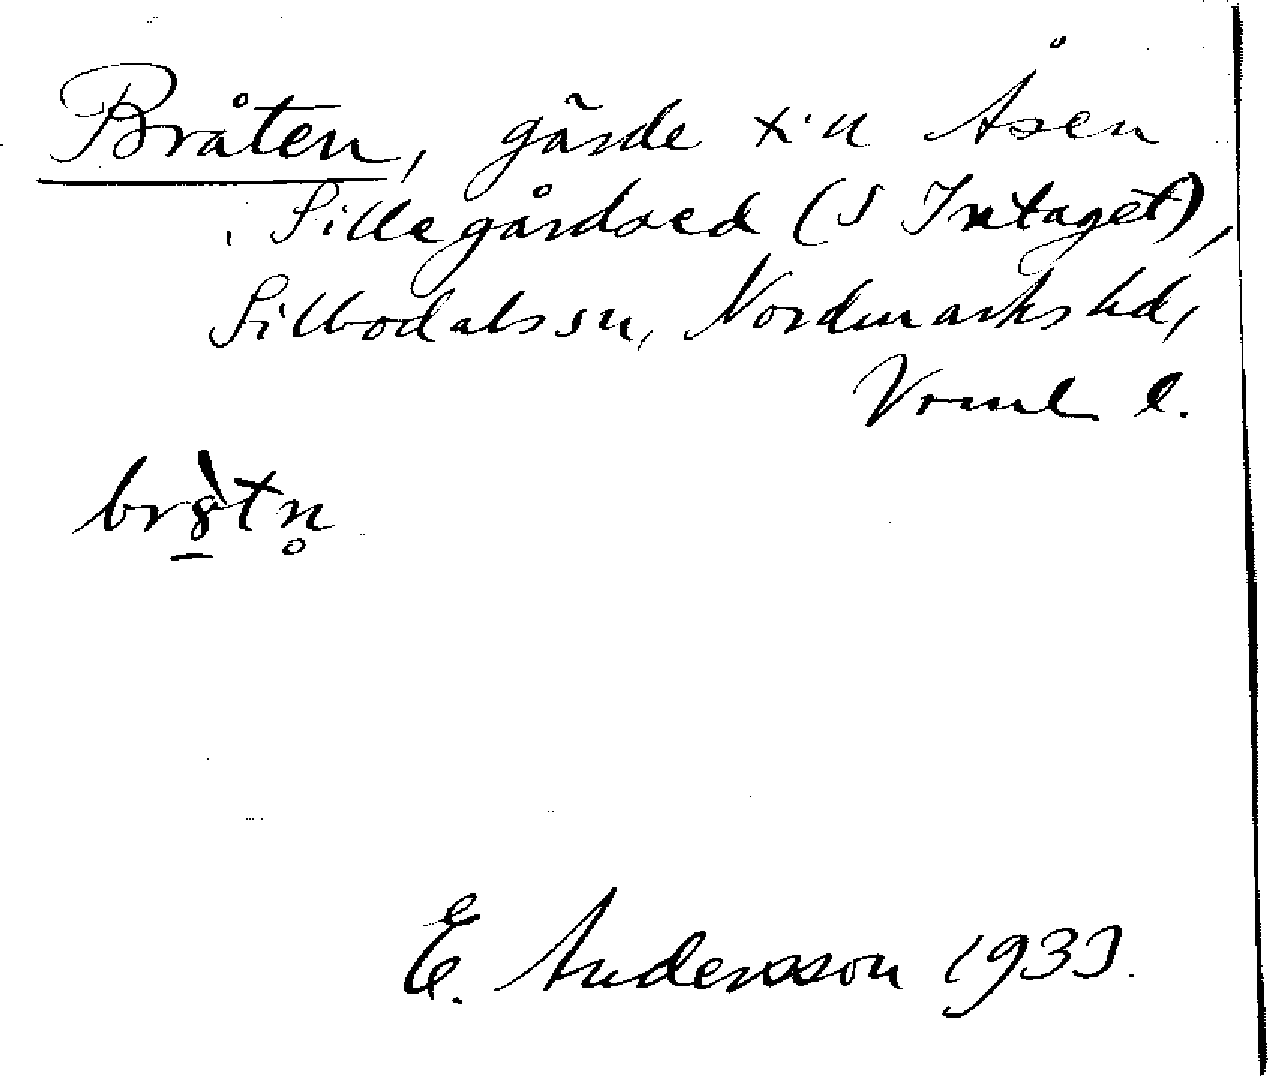 Bråten, gärde x·n Åsen
i Sillegårdsed (S Intaget),
Silbodals sn, Nordmarks hd,
Vrml l.
brȣ̀tn̥
E. Andersson 1933.